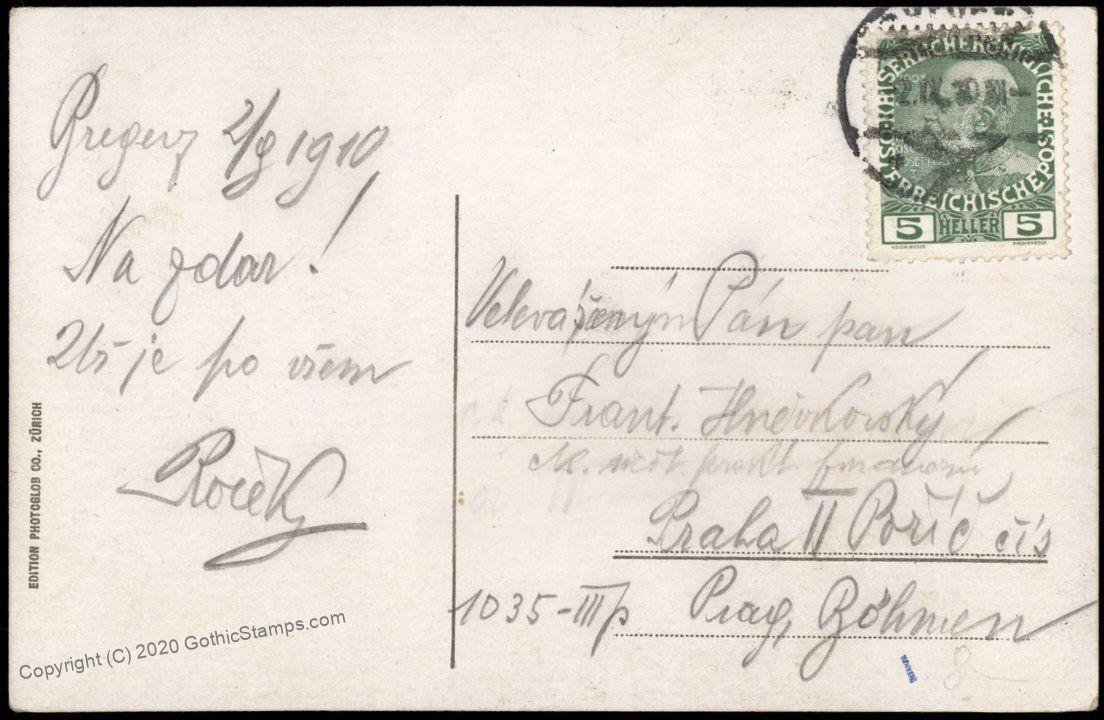 Bregenz 2/9 1910
Na zdar!
Už je po všem
Roček
EDITION PHOTOGLOB CO., ZÜRICH
2.IX.10
KAISERLICHE KÖNIGLICHE
ÖSTERREICHISCHE POST
5 HELLER 5
Velevážený Pán pan
Frant. Hněvkovský
Praha II Pořič čís
1035-III p Prag, Böhmen
Copyright (C) 2020 GothicStamps.com
8